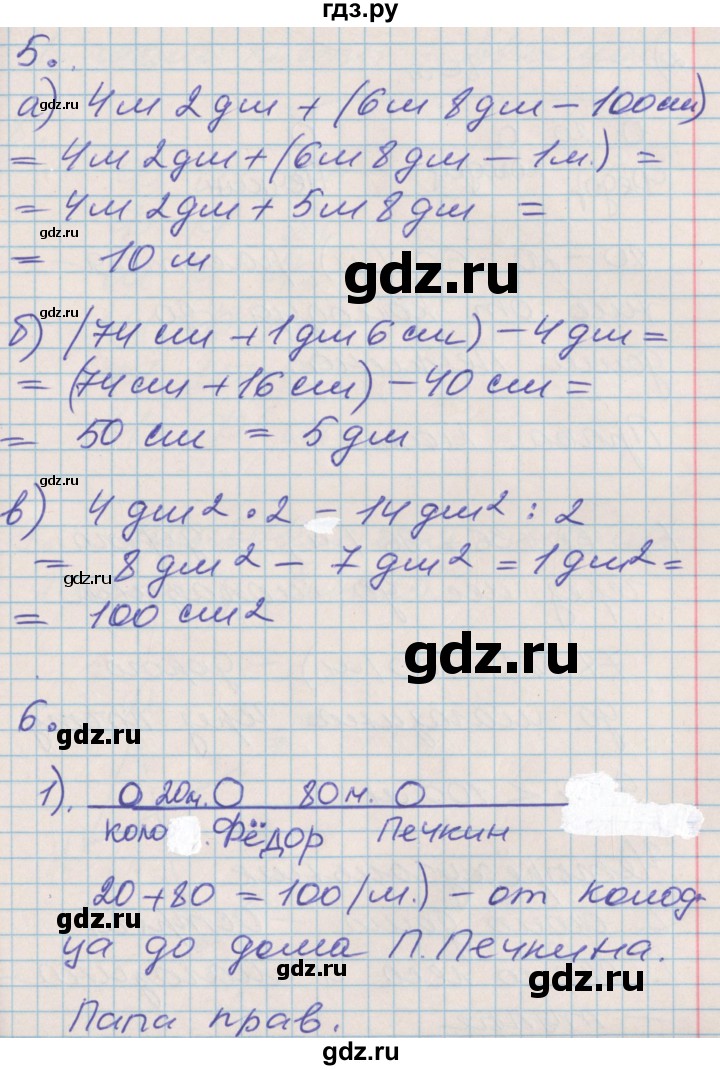 гдз.ру
5.
а) 4м 2дм + (6м 8дм − 100см)
= 4м 2дм + (6м 8дм − 1м.) =
= 4м 2дм + 5м 8дм =
= 10 м
gdz.ru
б) (74 см + 1дм 6см) − 4дм =
= (74см + 16см) − 40см =
= 50 см = 5дм
в) 4 дм² · 2 − 14дм² : 2
= 8 дм² − 7 дм² = 1дм² =
= 100 см2
gdz.ru
6.
gdz.ru
1). 20м. 80м.
коло . Фёдор Печкин
20+80 = 100 (м.) − от колод-
gdz.ru
ца до дома П. Печкина.
gdz.ru
gdz.ru
Папа прав.
gdz.ru